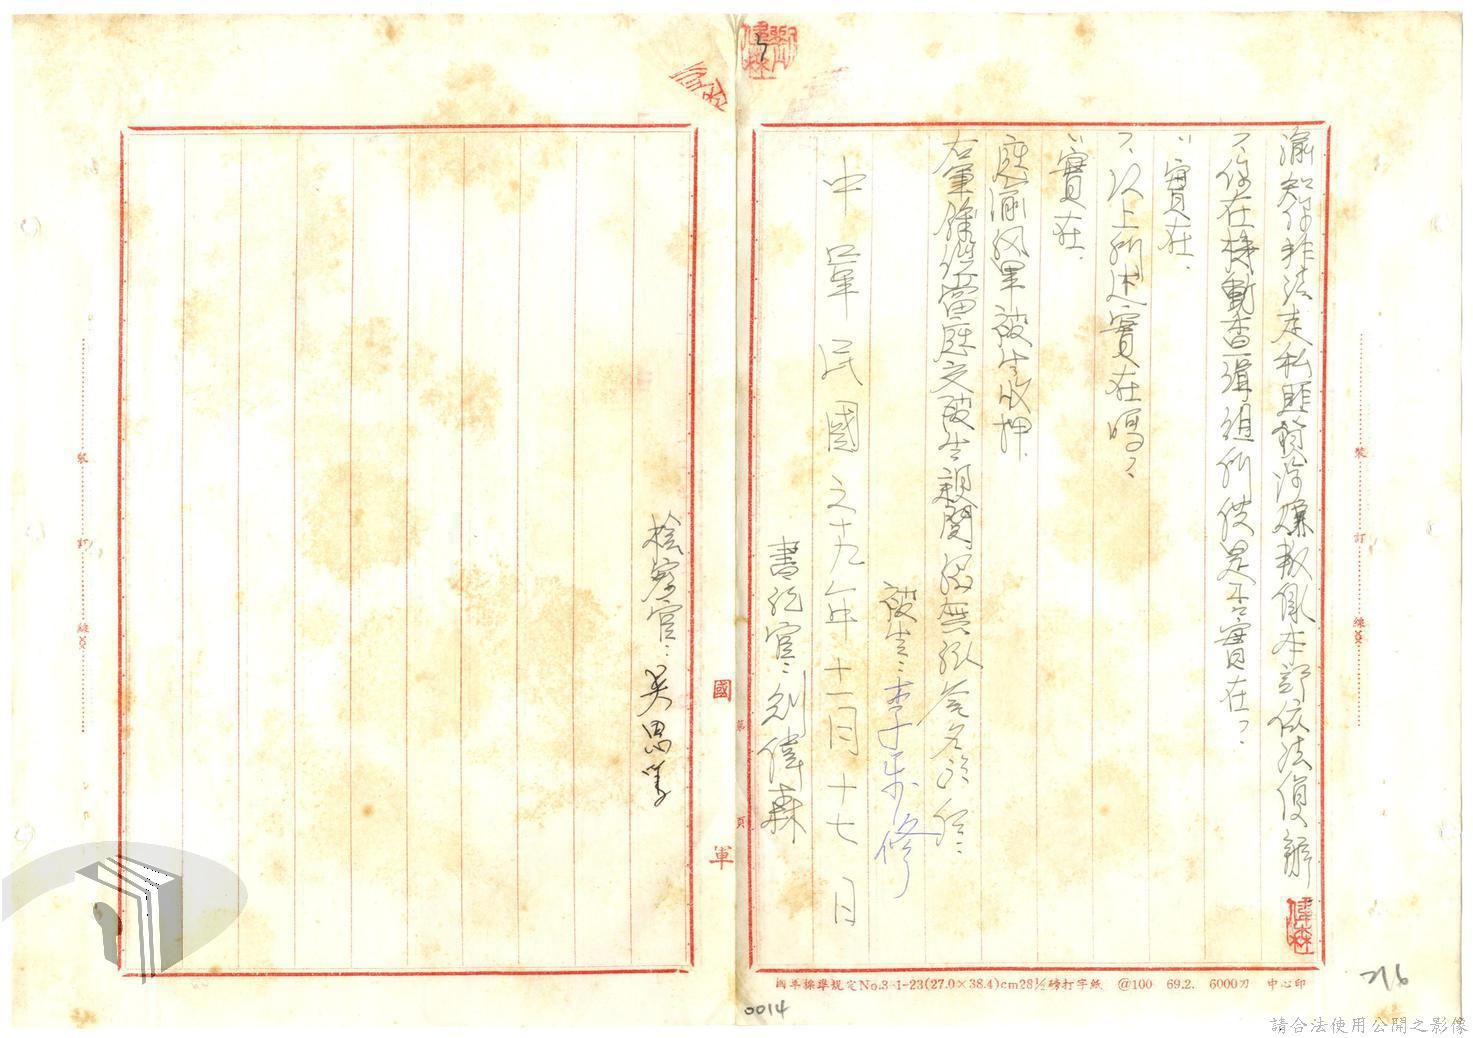 諭知你非法走私匪貨涉嫌叛亂本部依法偵辦
?你在機動查緝組所供是否實在?
:實在.
?以上所述實在嗎?
:實在.
庭諭以
被告收押.
右筆錄經當庭交被告親閱認無訛簽名於後:
被告:李
修
中華民國六十九年十一月十七日
書記官:劉偉森
檢察官:吳思
偉森
國軍
第 頁
裝 訂 線
裝 訂 線
國軍標準規定No.3-1-23(27.0×38.4)cm28½磅打字紙 @100 69.2. 6000刀 中心印
0014
216
請合法使用公開之影像